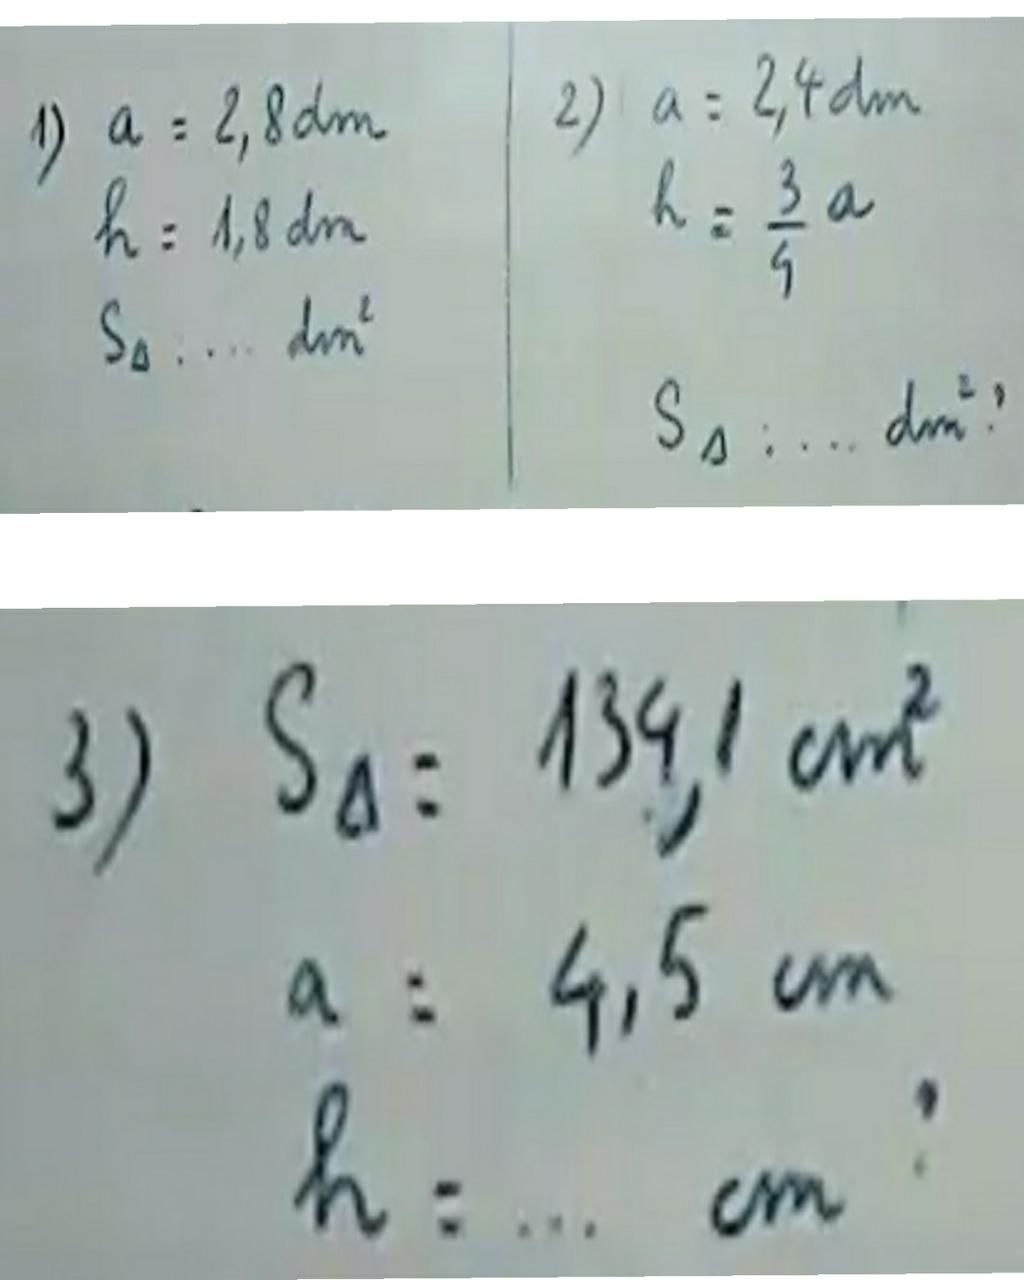 1) a = 2,8 dm
h = 1,8 dm
S△ : .... dm²
2) a = 2,4 dm
h = 3/4 a
S△ : .... dm² ?
3) S△ = 134,1 cm²
a = 4,5 cm
h = ... cm ?